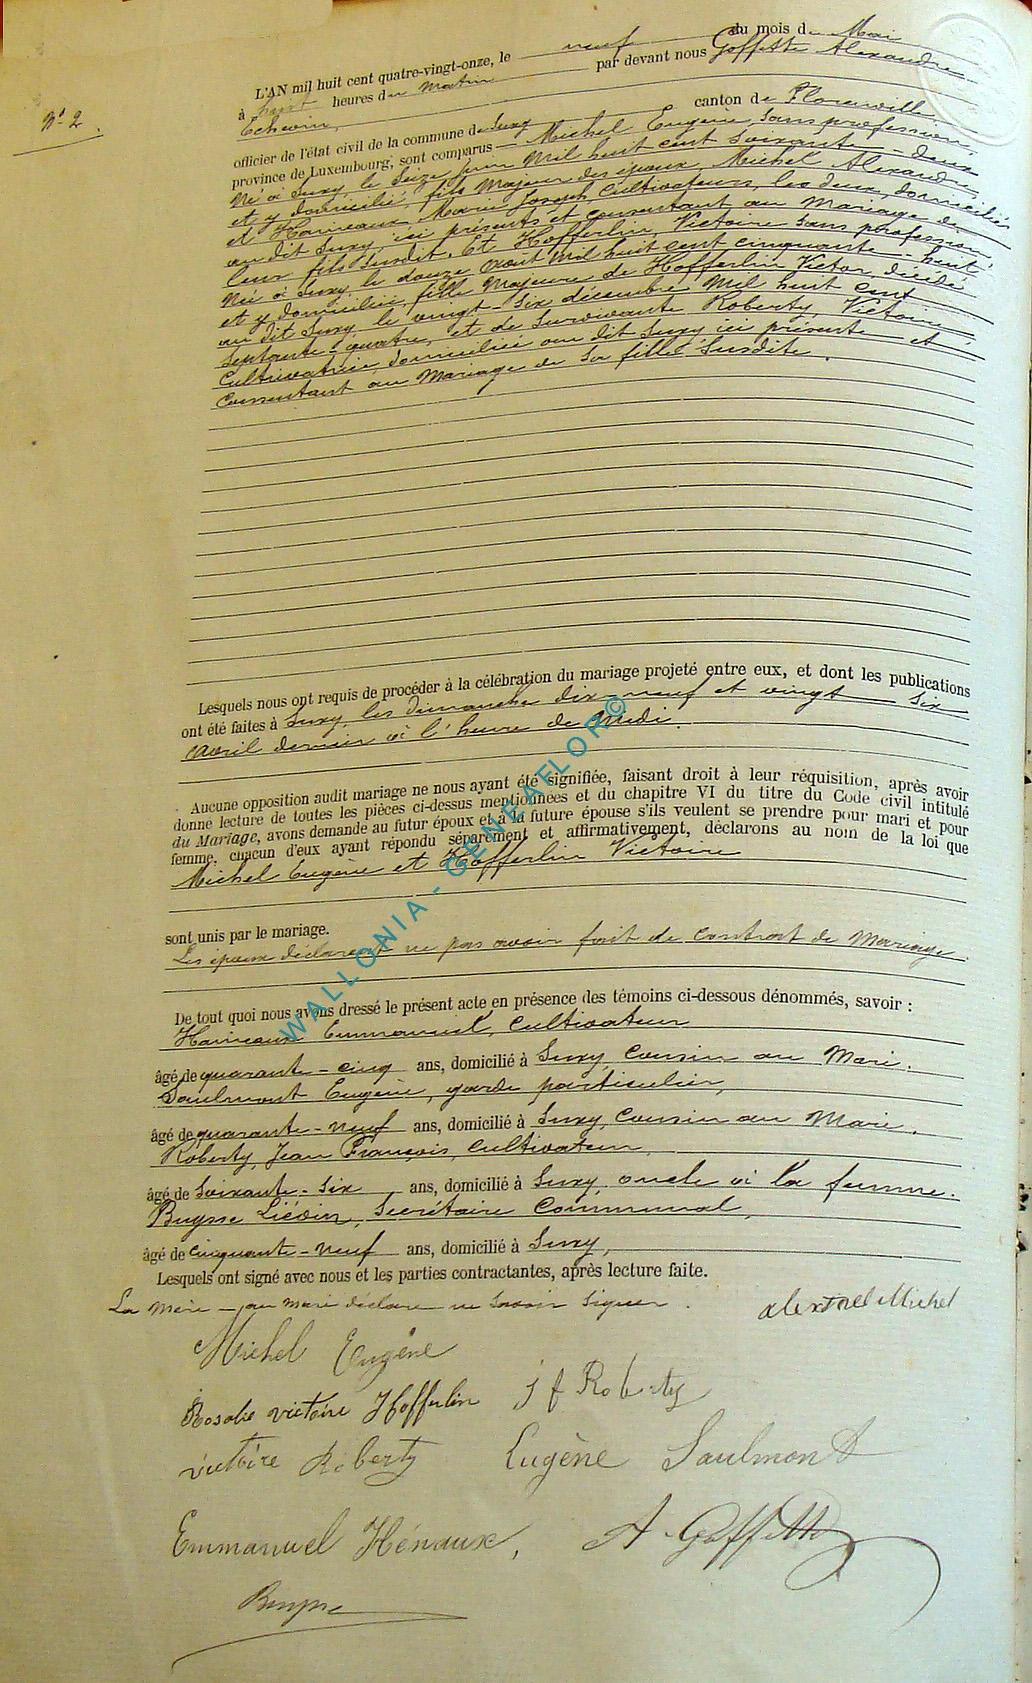 N° 2.
L'AN mil huit cent quatre-vingt-onze, le neuf du mois de Mai
à huit heures du matin par devant nous Goffette Alexandre
Echevin,
officier de l'état civil de la commune de Suxy canton de Florenville
province de Luxembourg, sont comparus Michel Eugène, sans profession,
Né à Suxy le Seize Juin Mil huit cent soixante-deux
et y domicilié, fils Majeur des époux Michel Alexandre,
et Hanneaux Marie Joseph, Cultivateurs, les deux, domiciliés
au dit Suxy, ici présents et consentant au Mariage de
leur fils Susdit. Et Hofferlin Victoire sans profession,
Née à Suxy le douze Août Mil huit cent cinquante-huit
et y domiciliée, fille Majeure de Hofferlin Victor, décédé
au dit Suxy le vingt-six décembre Mil huit cent
Septante-quatre, et de Survivante Roberty, Victoire,
Cultivatrice, domiciliée au dit Suxy ici présente et
Consentant au Mariage de Sa fille Susdite.
Lesquels nous ont requis de procéder à la célébration du mariage projeté entre eux, et dont les publications
ont été faites à Suxy, les dimanches dix-neuf et vingt Six
Avril dernier à l'heure de Midi.
Aucune opposition audit mariage ne nous ayant été signifiée, faisant droit à leur réquisition, après avoir
donné lecture de toutes les pièces ci-dessus mentionnées et du chapitre VI du titre du Code civil intitulé
du Mariage, avons demandé au futur époux et à la future épouse s'ils veulent se prendre pour mari et pour
femme, chacun d'eux ayant répondu séparément et affirmativement, déclarons au nom de la loi que
Michel Eugène et Hofferlin Victoire
sont unis par le mariage.
Les époux déclarent ne pas avoir fait de contrat de Mariage.
De tout quoi nous avons dressé le présent acte en présence des témoins ci-dessous dénommés, savoir :
Hanneaux Emmanuel, Cultivateur
âgé de quarante-cinq ans, domicilié à Suxy, Cousin au Mari.
Saulmont Eugène, garde particulier,
âgé de quarante-neuf ans, domicilié à Suxy, Cousin au Mari.
Roberty, Jean François, Cultivateur,
âgé de Soixante-Six ans, domicilié à Suxy, oncle à la femme.
Buysse Liévin, Secrétaire Communal,
âgé de cinquante-neuf ans, domicilié à Suxy,
Lesquels ont signé avec nous et les parties contractantes, après lecture faite.
La Mère au mari déclare ne Savoir Signer.
Michel
Michel Eugène
Rosalie victoire Hofferlin J f Roberty
victoire Roberty Eugène Saulmont
Emmanuel Hénaux, A. Goffette
Buysse
WALLONIA - GENEAFLOR©